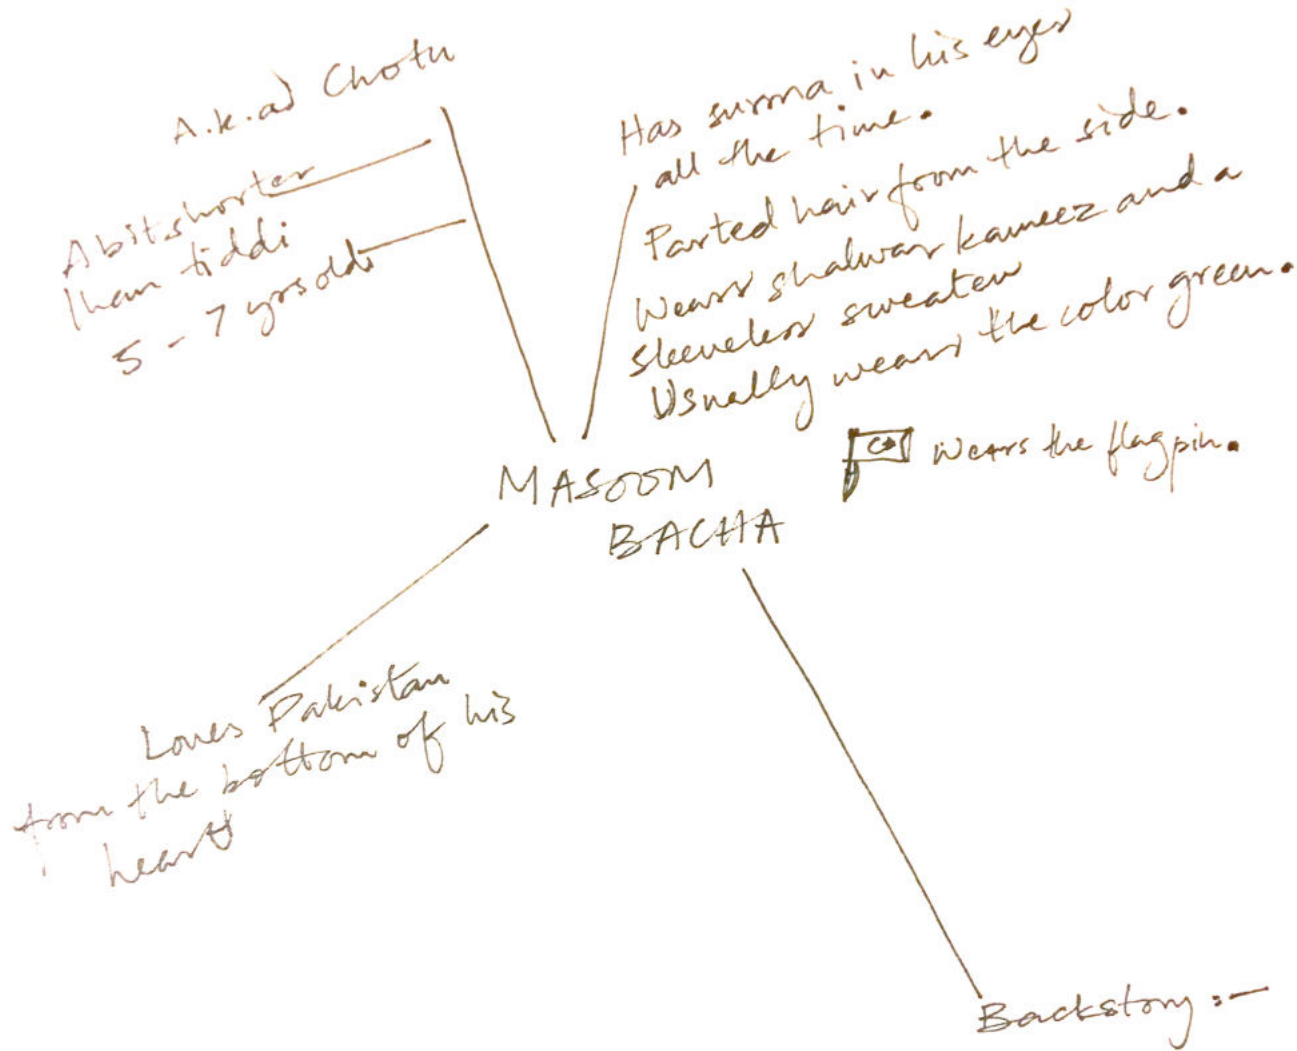 A.k.a Chotu
A bit shorter
than tiddi
5 - 7 yrs old
Has surma in his eyes
all the time.
Parted hair from the side.
Wears shalwar kameez and a
sleeveless sweater
Usually wears the color green.
Wears the flag pin.
MASOOM
BACHA
Loves Pakistan
from the bottom of his
heart
Backstory :-